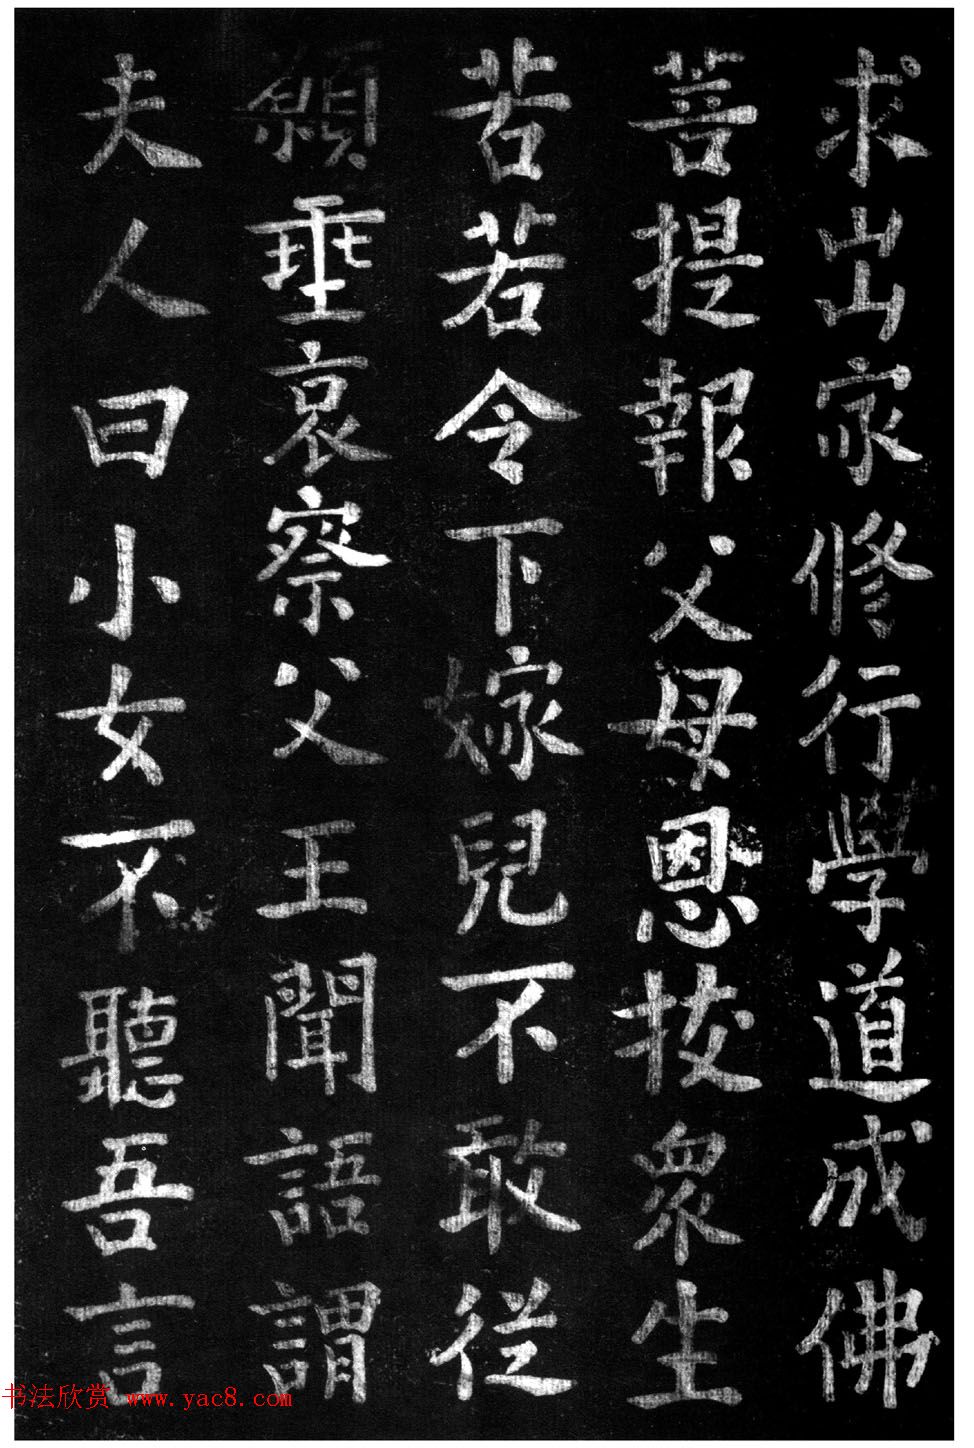 求出家修行學道成佛
菩提報父母恩拔衆生
苦若令下嫁兒不敢從
願垂哀察父王聞語謂
夫人曰小女不聽吾言
书法欣赏 www.yac8.com